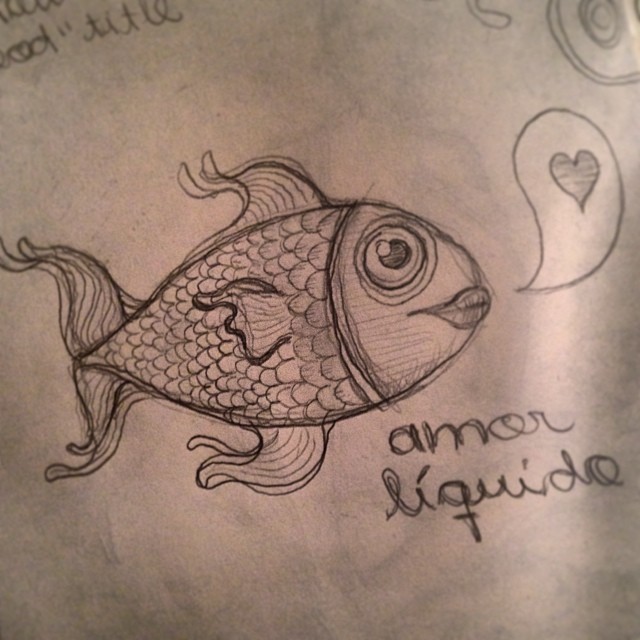 title
amor
líquido